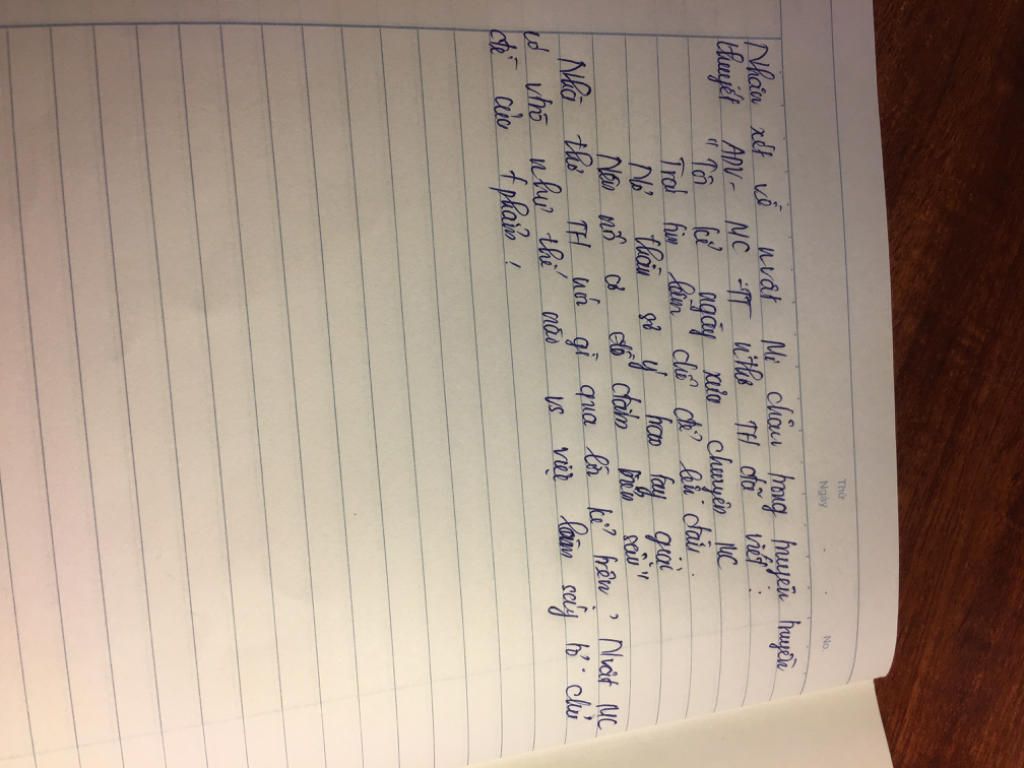 Thứ
Ngày
No.
Nhận xét về nvật Mị châu trong truyền truyền
thuyết ADV - MC - TT nthơ TH đã viết:
"Tôi kể ngày xưa chuyện MC
Trái tim lầm chỗ để trên đầu
Nỏ thần vô ý trao tay giặc
Nên nỗi cơ đồ đắm biển sâu"
Nhà thơ TH nói gì qua lời kể trên, Nvật MC
có vtrò như thế nào vs việc làm sáng tỏ chủ
đề của tphẩm!